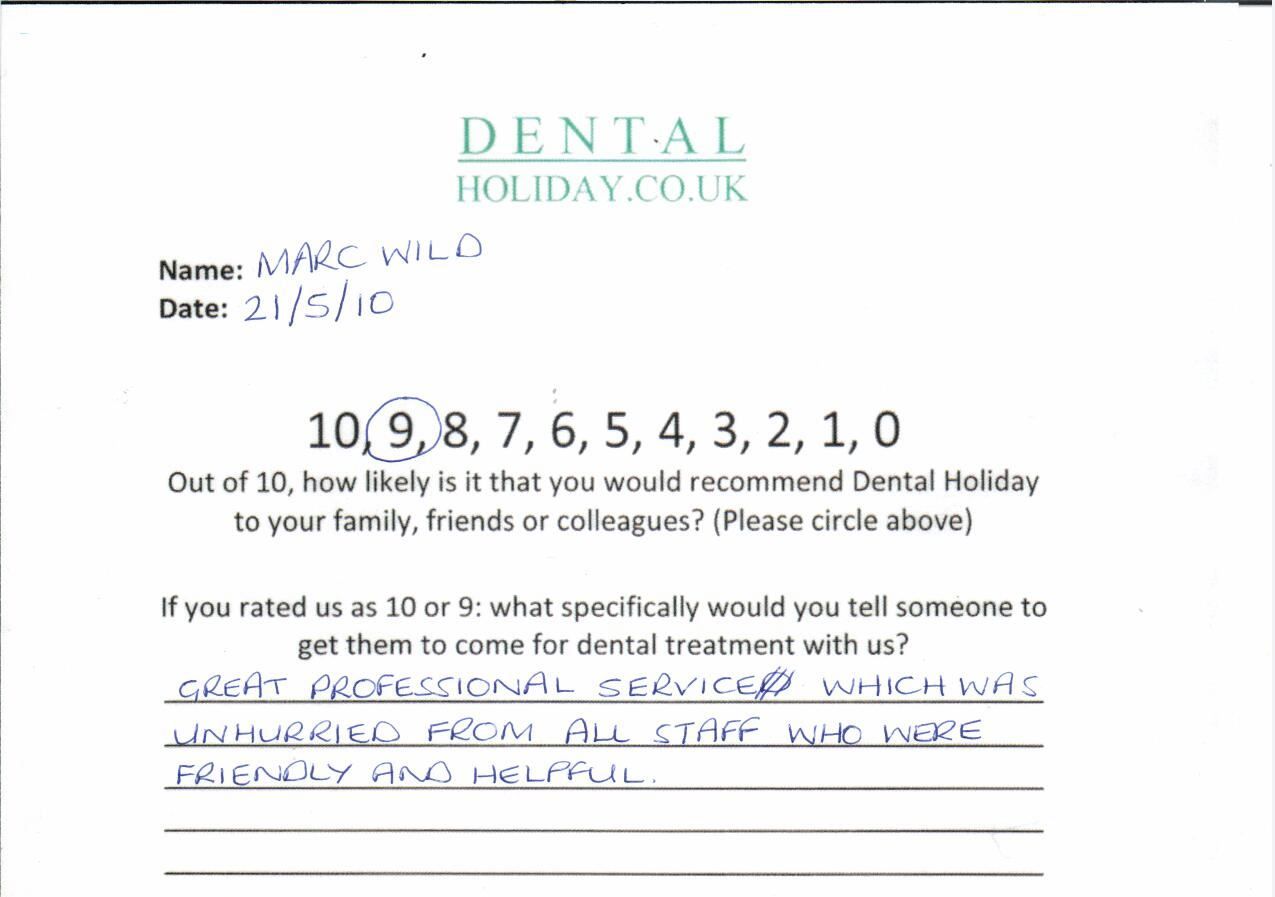 DENTAL
HOLIDAY.CO.UK
Name: MARC WILD
Date: 21/5/10
10, 9, 8, 7, 6, 5, 4, 3, 2, 1, 0
Out of 10, how likely is it that you would recommend Dental Holiday
to your family, friends or colleagues? (Please circle above)
If you rated us as 10 or 9: what specifically would you tell someone to
get them to come for dental treatment with us?
GREAT PROFESSIONAL SERVICE WHICH WAS
UNHURRIED FROM ALL STAFF WHO WERE
FRIENDLY AND HELPFUL.